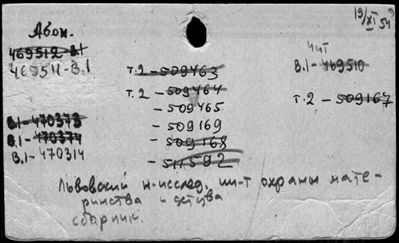 19/XI 54
Абон.
469512-В.1
469511-В.1
чит
В.1-469510
т.2-509463
т.2-509464
-509465
-509169
-509168
-511592
т.2-509167
В.1-470373
В.1-470374
В.1-470314
Львовский н-исслед. ин-т охраны мате-
ринства и детства
сборник.